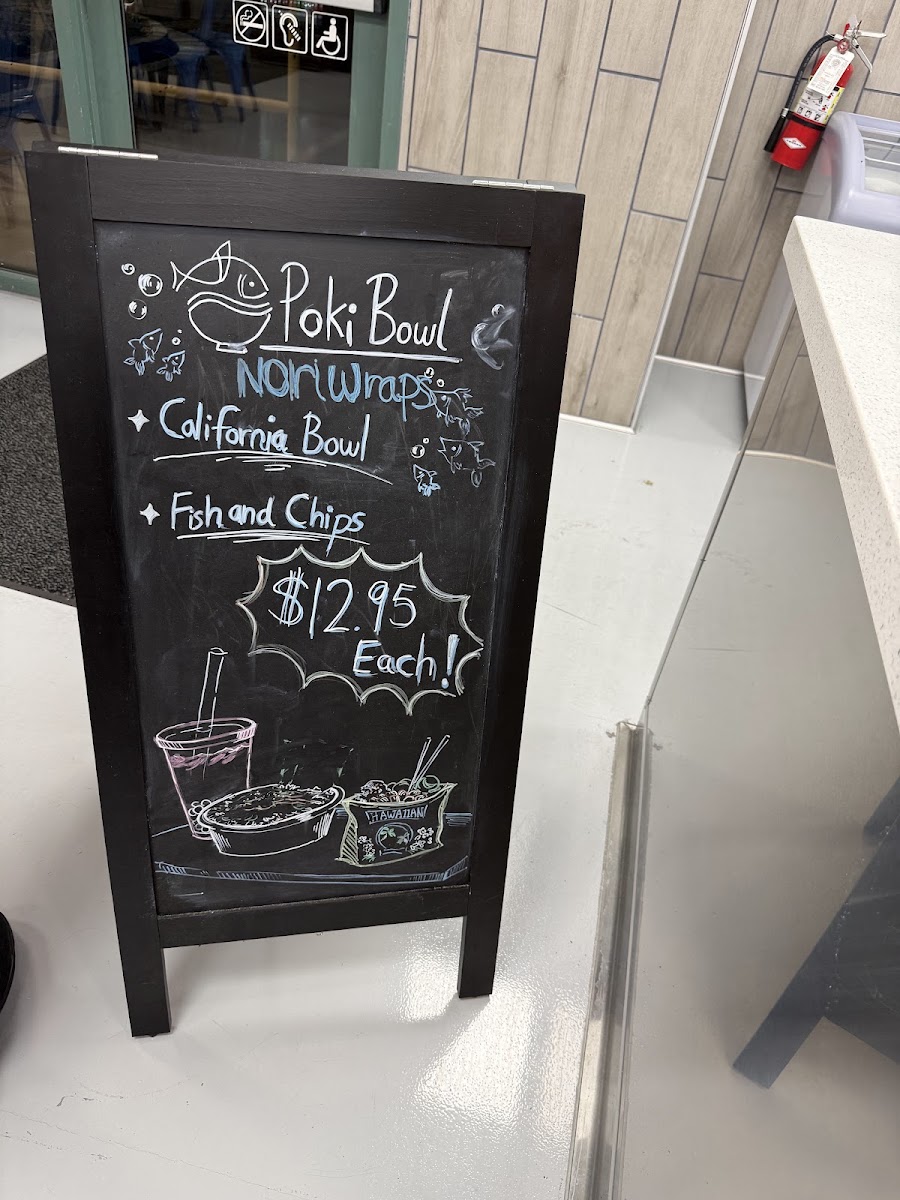 Poki Bowl
Nori Wraps
California Bowl
Fish and Chips
$12.95
Each!
HAWAIIAN